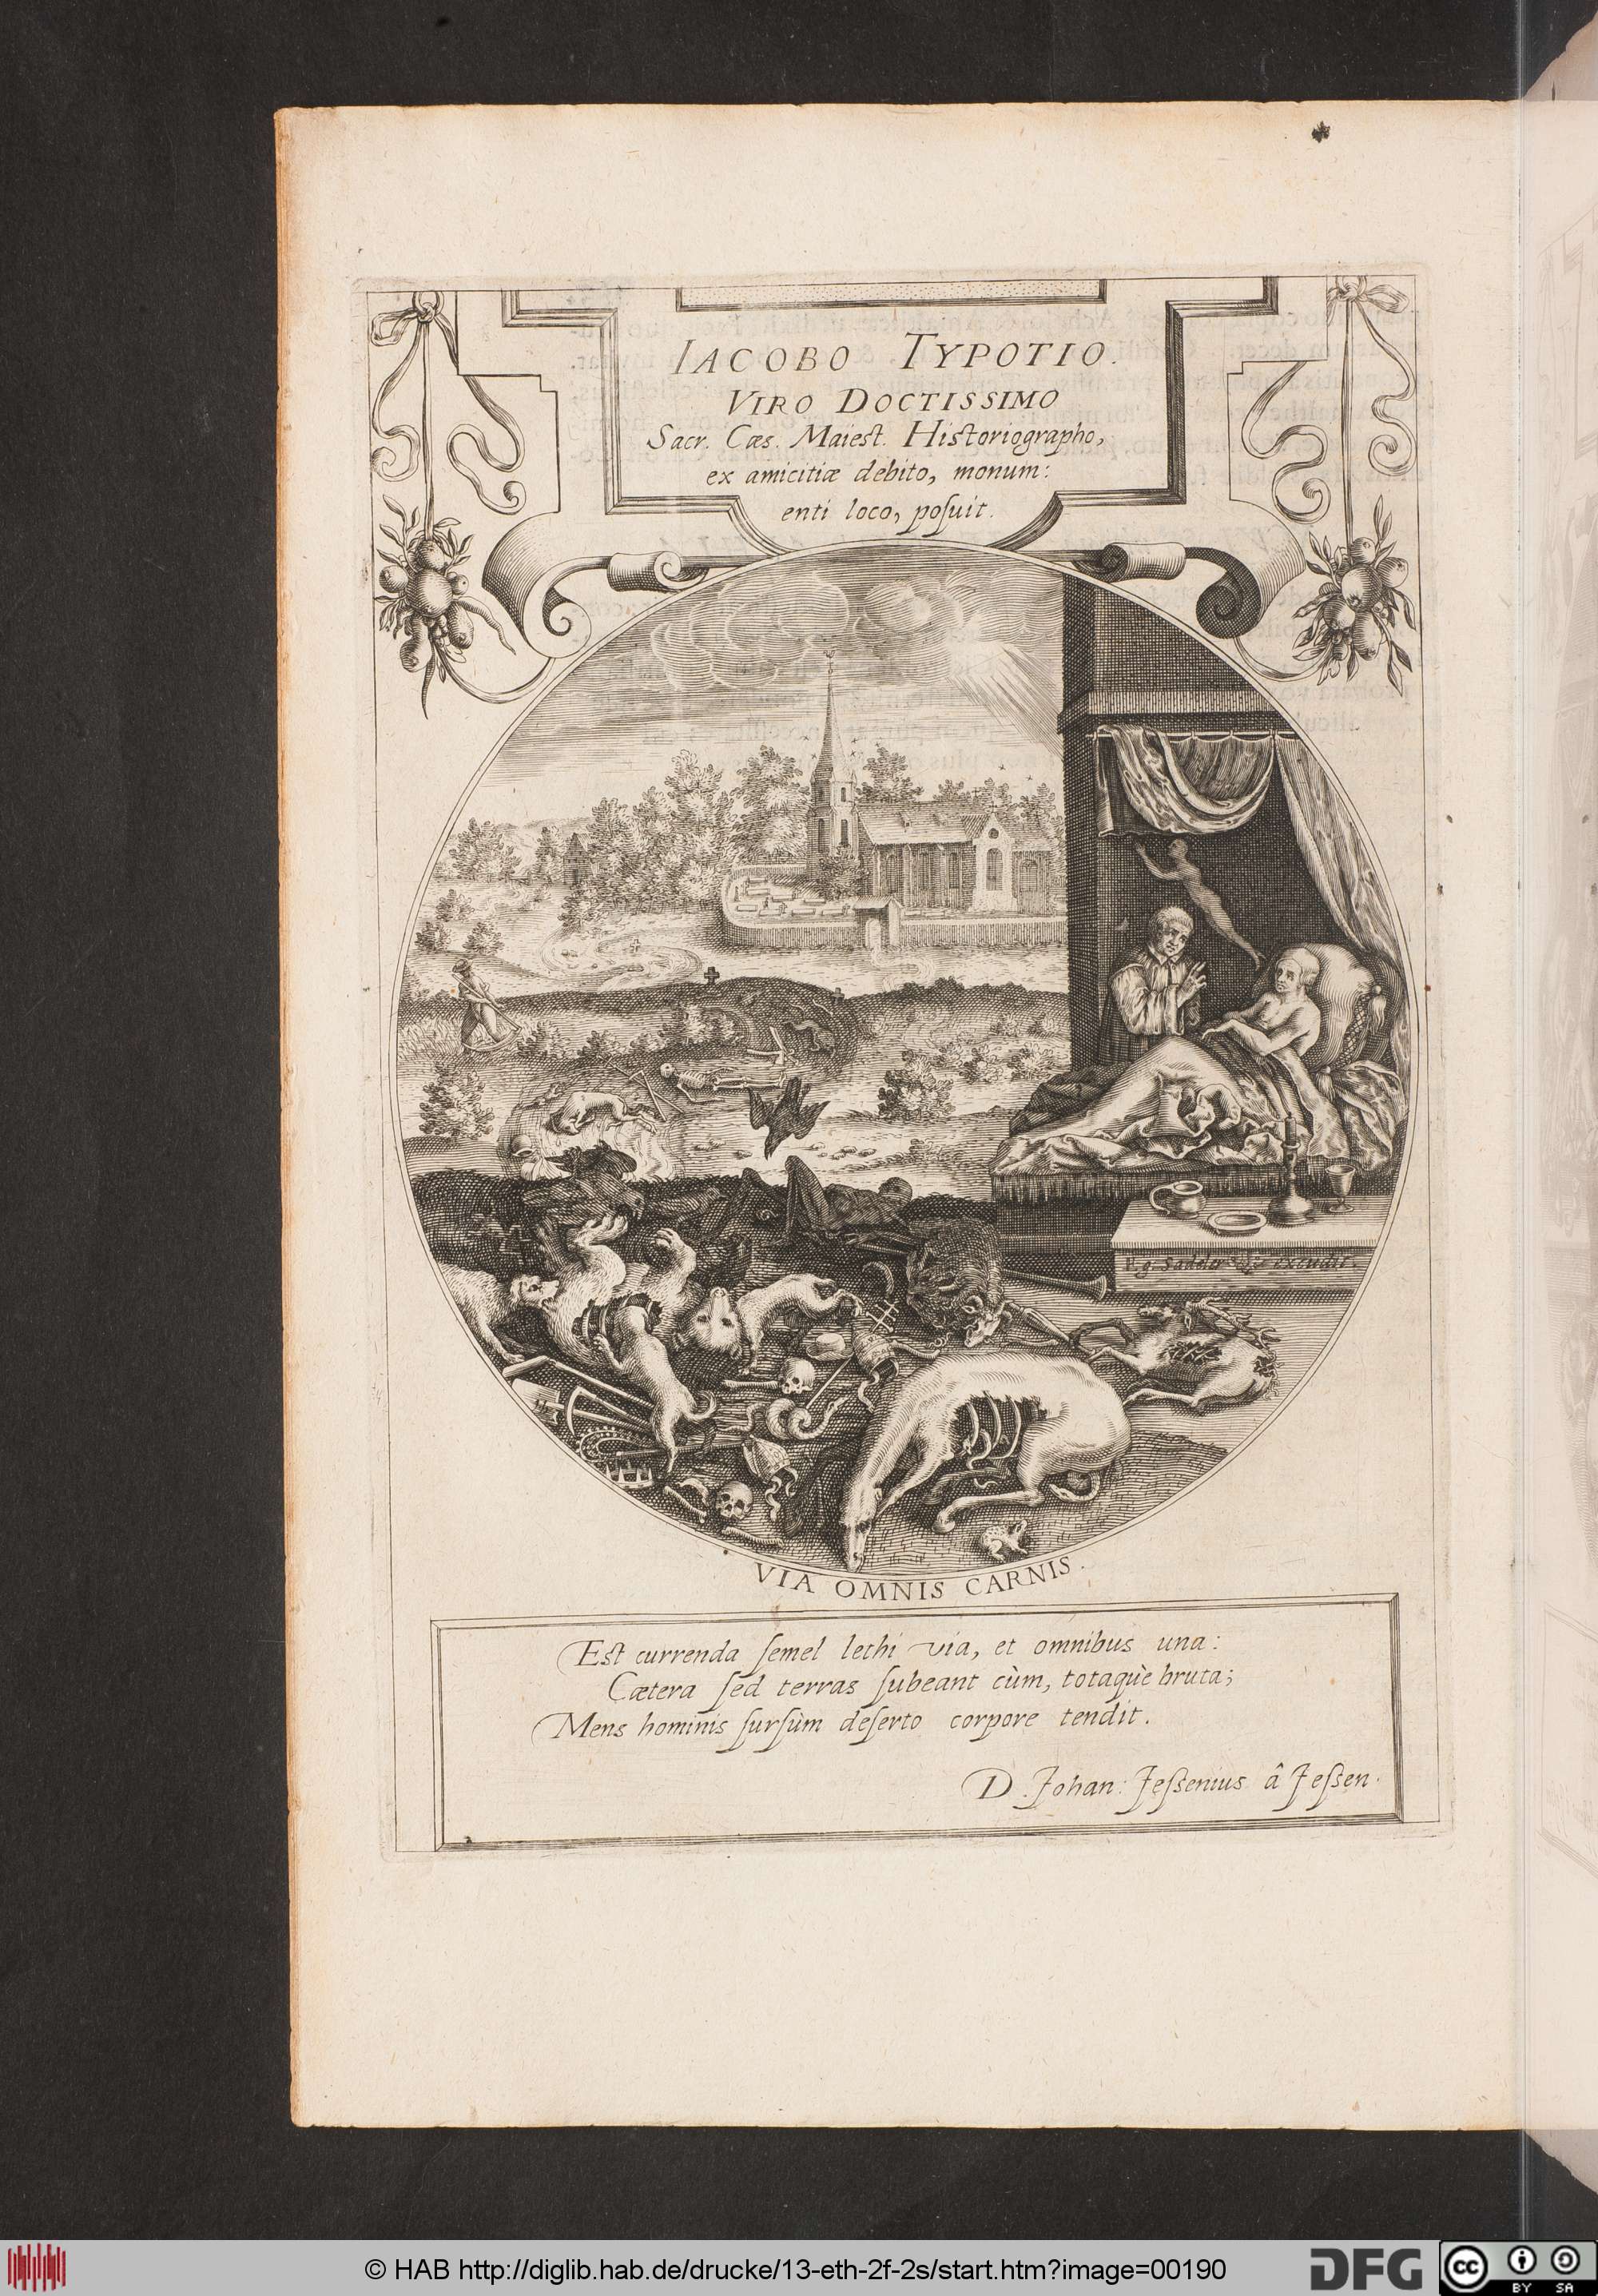 IACOBO TYPOTIO.
VIRO DOCTISSIMO
Sacr. Cæs. Maiest. Historiographo,
ex amicitiæ debito, monum:
enti loco, poſuit.
Eg. Sadeler excudit.
VIA OMNIS CARNIS.
Est currenda ſemel lethi via, et omnibus una:
Cætera ſed terras ſubeant cùm, totaquè bruta;
Mens hominis ſurſùm deſerto corpore tendit.
D. Johan: Jeſsenius â Jeſsen.
© HAB http://diglib.hab.de/drucke/13-eth-2f-2s/start.htm?image=00190
DFG
cc
BY SA